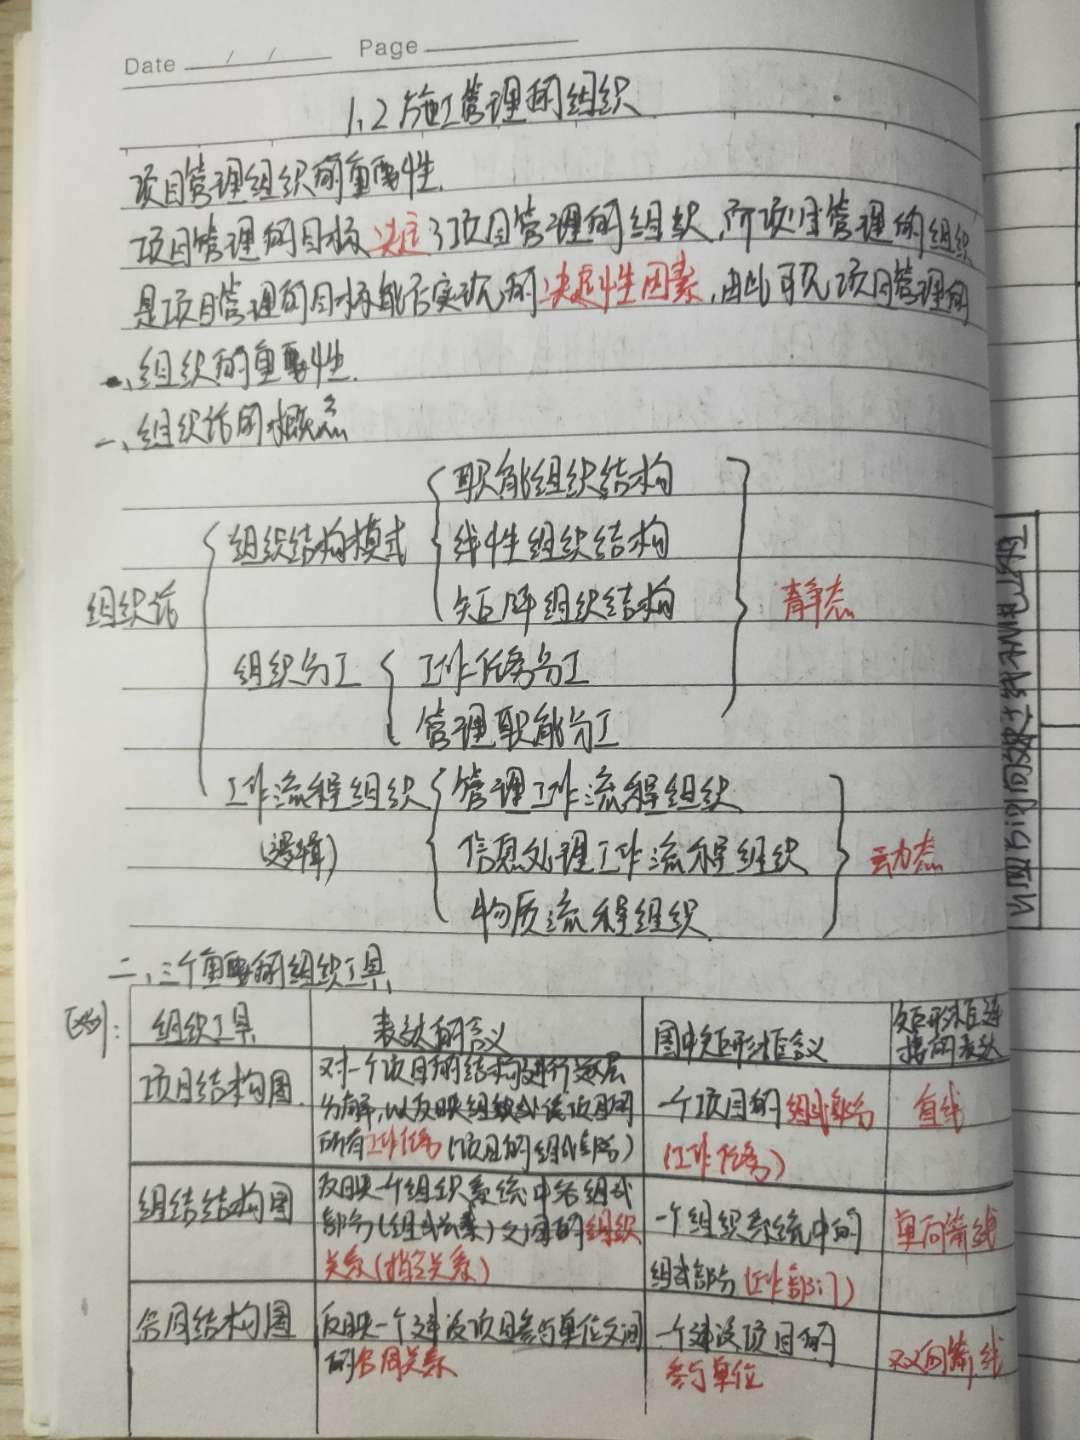 Date / / Page
1.2 施工管理的组织
项目管理组织的重要性.
项目管理的目标决定了项目管理的组织,而项目管理的组织
是项目管理的目标能否实现的决定性因素,由此可见项目管理的
组织的重要性.
一、组织论的概念
组织论
组织结构模式
职能组织结构
线性组织结构
矩阵组织结构
组织分工
工作任务分工
管理职能分工
静态
工作流程组织
(逻辑)
管理工作流程组织
信息处理工作流程组织
物质流程组织
动态
二、三个重要的组织工具
区别:
组织工具 表达的含义 图中矩形框含义 矩形框连接的表达
项目结构图 对一个项目的结构进行逐层
分解,以反映组成该项目的
所有工作任务(项目的组成部分)
一个项目的组成部分
(工作任务)
直线
组织结构图 反映一个组织系统中各组成
部分(组成元素)之间的组织
关系(指令关系)
一个组织系统中的
组成部分(工作部门)
单向箭线
合同结构图 反映一个建设项目参与单位之间
的合同关系
一个建设项目的
参与单位
双向箭线